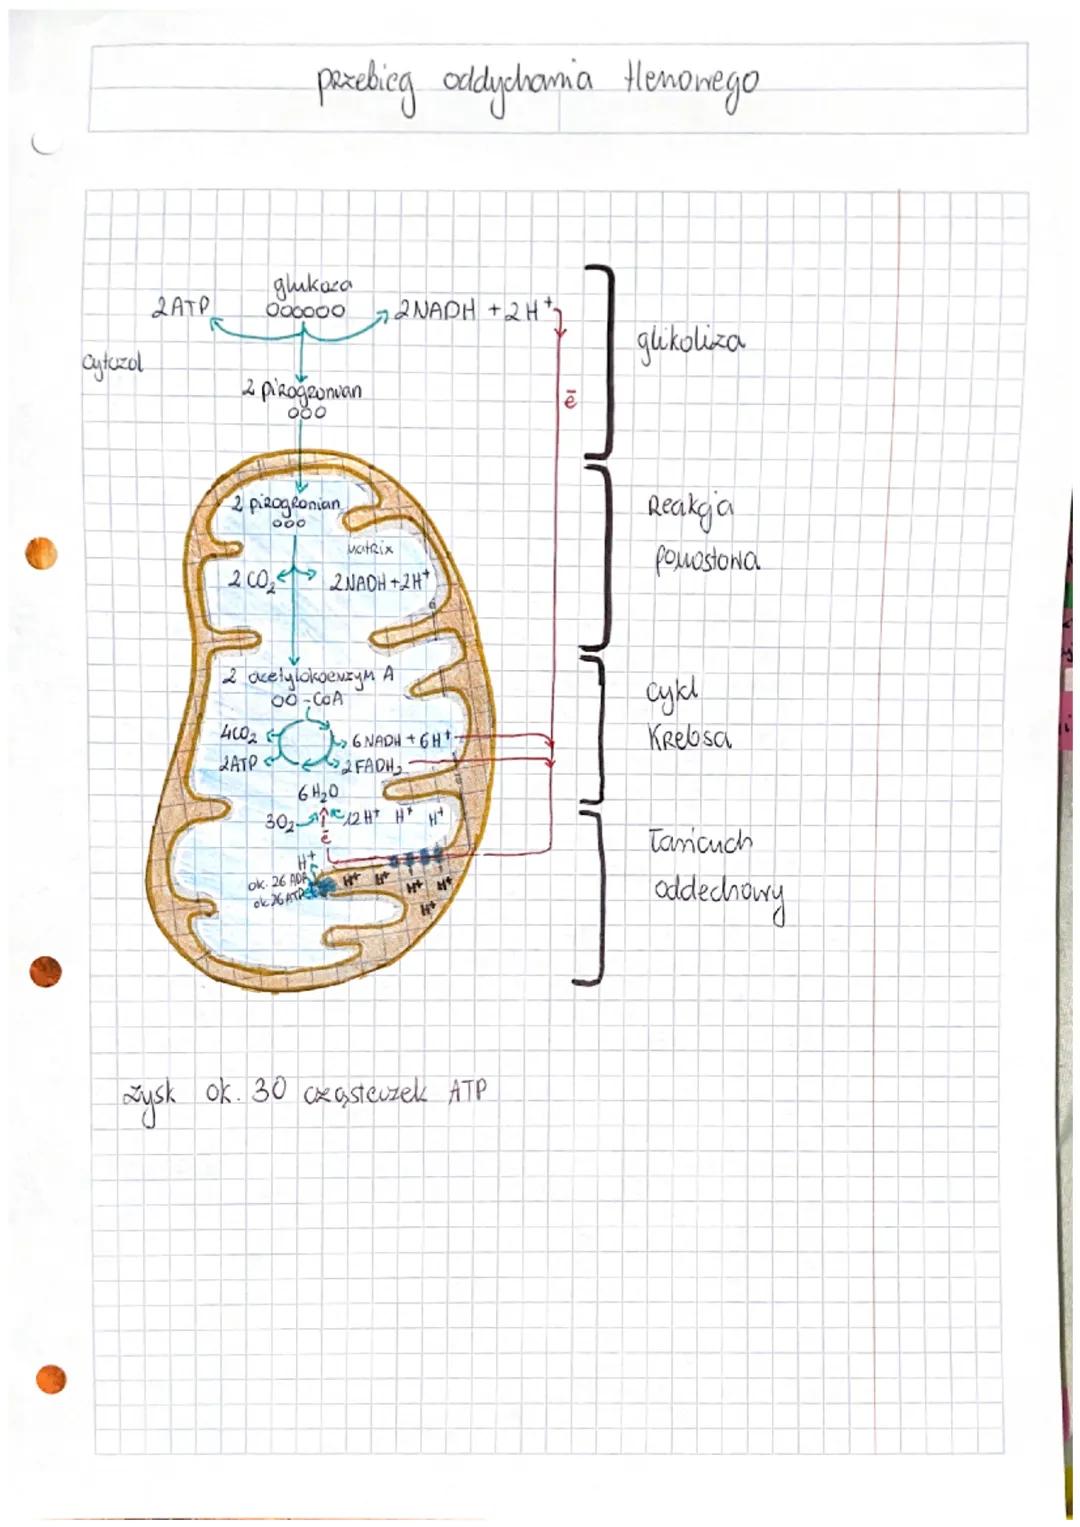 przebieg oddychania tlenowego
glukoza
2ATP
2NADH + 2H⁺
glikoliza
cytozol
2 pirogronian
ē
2 pirogronian
Reakcja
matrix
pomostowa
2 CO₂
2NADH + 2H⁺
2 acetylokoenzym A
-CoA
cykl
4CO₂
6 NADH + 6H⁺
Krebsa
2ATP
2 FADH₂
6 H₂O
3O₂
12H⁺ H⁺ H⁺
ē
Łańcuch
H⁺
ok. 26 ADP
H⁺ H⁺ H⁺ H⁺
oddechowy
ok. 26 ATP
H⁺
zysk ok. 30 cząsteczek ATP